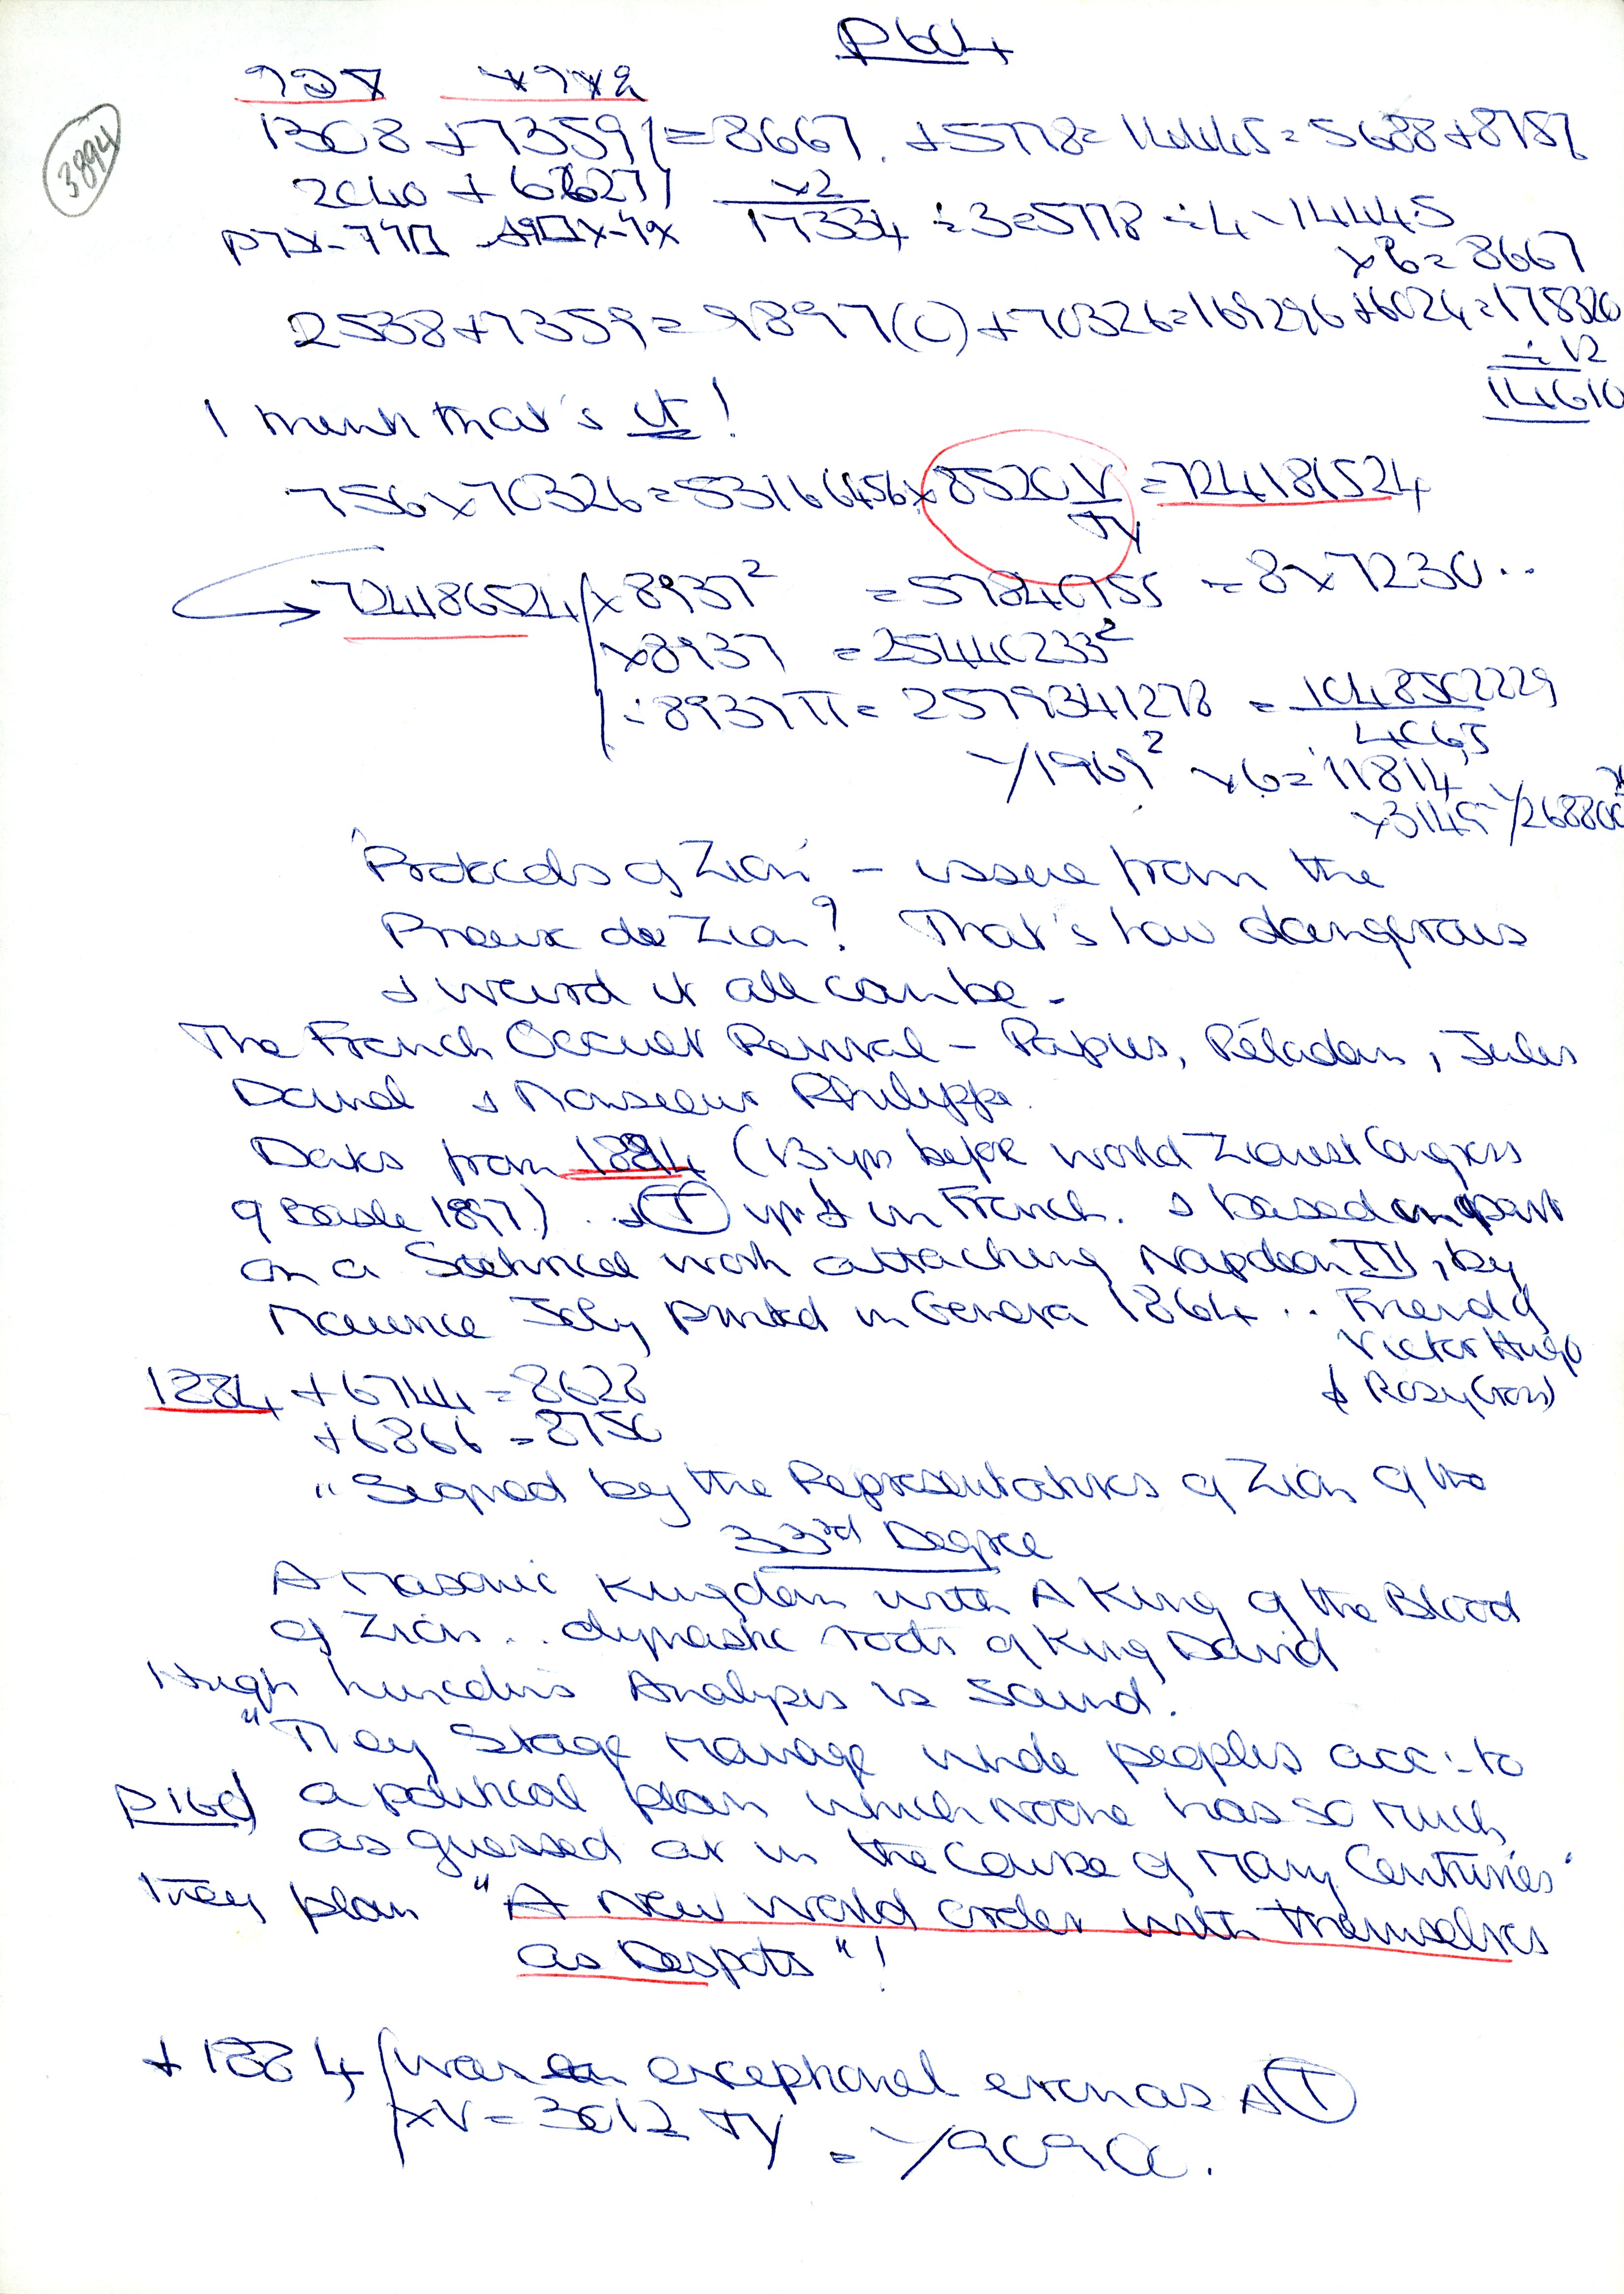 3894
1308 + 7359 = 8667 + 5778 = 14445 = 5688 + 8757
2040 +
x2
17334 ÷ 3 = 5778 ÷ 4 - 1444.5
x 6 = 8667
2538 + 7359 = 9897(0) + 70326 = 169296 + 6024 = 175320
÷ 12
14610
I think that's it!
756 x 70326 = 53166456 x 8520 V = 724181524
724186524 x 8937² = 57840955 = 8 x 7230..
x 8937 = 25440233²
÷ 8937 π = 2579341278 = 1048502229
√1969² x 6 = 11814
'Protocols of Zion' – issue from the
Prieure de Zion? That's how dangerous
& weird it all can be -
The French Occult Revival – Papus, Péladan, Jules
Doinel & Monsieur Philippe.
Dates from 1884 (13 yrs before World Zionist Congress
of Basle 1897) . & T in French. & based in part
on a Satirical work attacking Napoleon III, by
Maurice Joly printed in Geneva 1864 .. Friend of
Victor Hugo
& Rosy Cross)
1884 + 6744 = 8628
+ 6866 = 8750
"Signed by the Representatives of Zion of the
33rd Degree
A Masonic Kingdom with A King of the Blood
of Zion .. dynastic roots of King David
Analysis is Sound.
"They Stage Manage whole peoples acc: to
p160) a political plan which noone has so much
as guessed at in the Course of Many Centuries"
They plan "A New World order with themselves
as Despots"!
+ 1884 / was an exceptional even as A T
x V = 3012 = √9090.